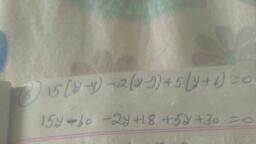 (8) 15(y-4) -2(y-9)+5(y+6) =0
15y-60 -2y+18 +5y+30 =0